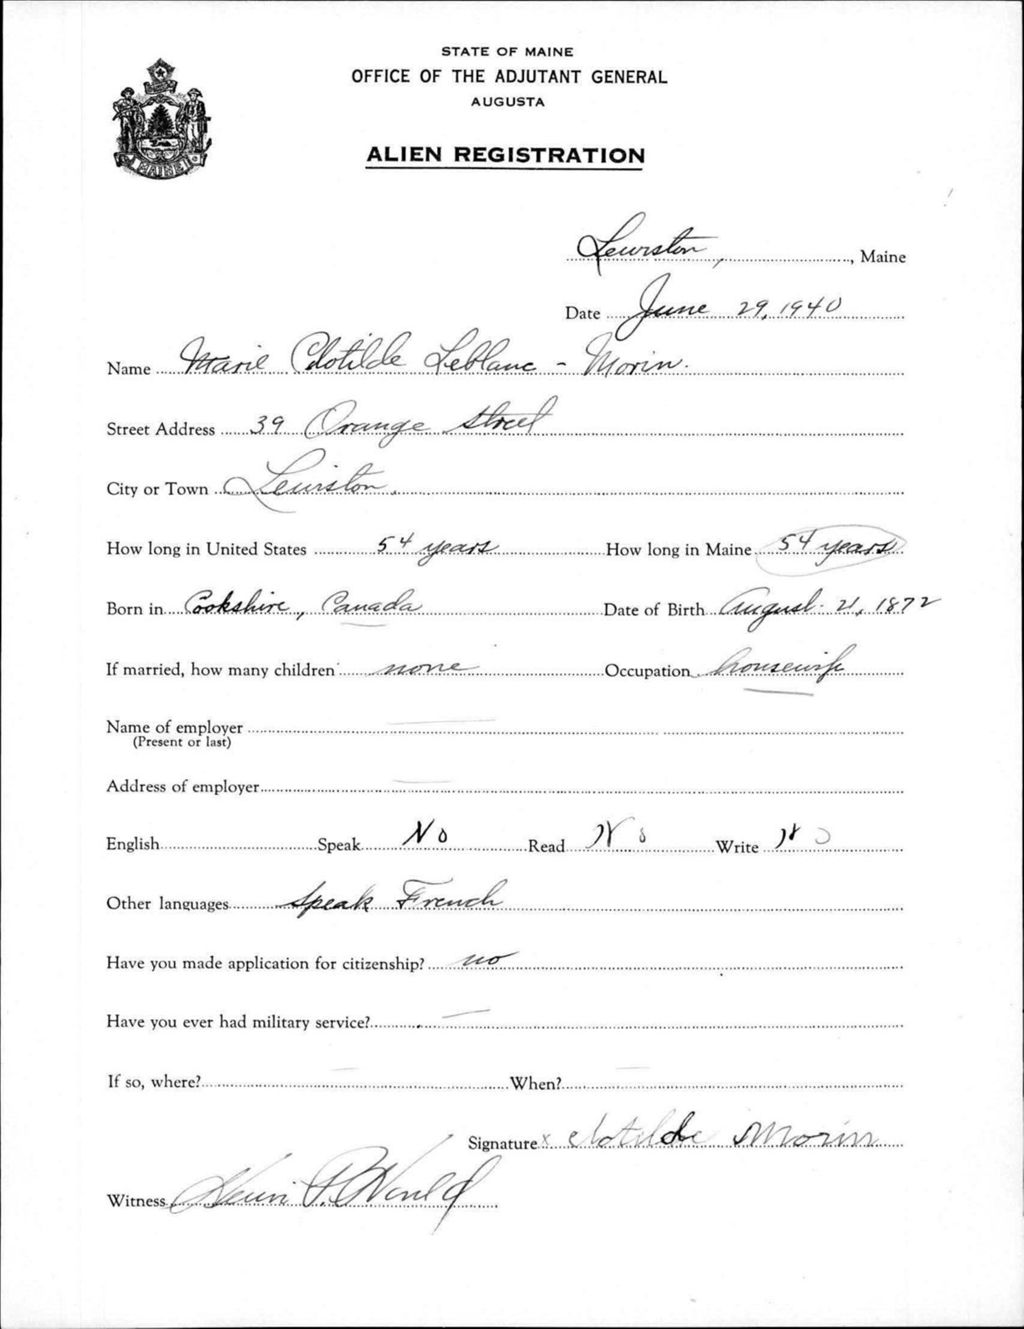 STATE OF MAINE
OFFICE OF THE ADJUTANT GENERAL
AUGUSTA
ALIEN REGISTRATION
MAINE
Lewiston, , Maine
Date June 29, 1940
Name Marie Clotilde Leblanc - Morin.
Street Address 39 Orange Street
City or Town Lewiston.
How long in United States 54 years How long in Maine 54 years
Born in Cookshire, Canada Date of Birth August 21, 1872
If married, how many children none Occupation housewife
Name of employer
(Present or last)
Address of employer
English Speak No Read No Write No
Other languages speak French
Have you made application for citizenship? no
Have you ever had military service? —
If so, where? — When? —
Signature x Clotilde Morin
Witness Henri P.